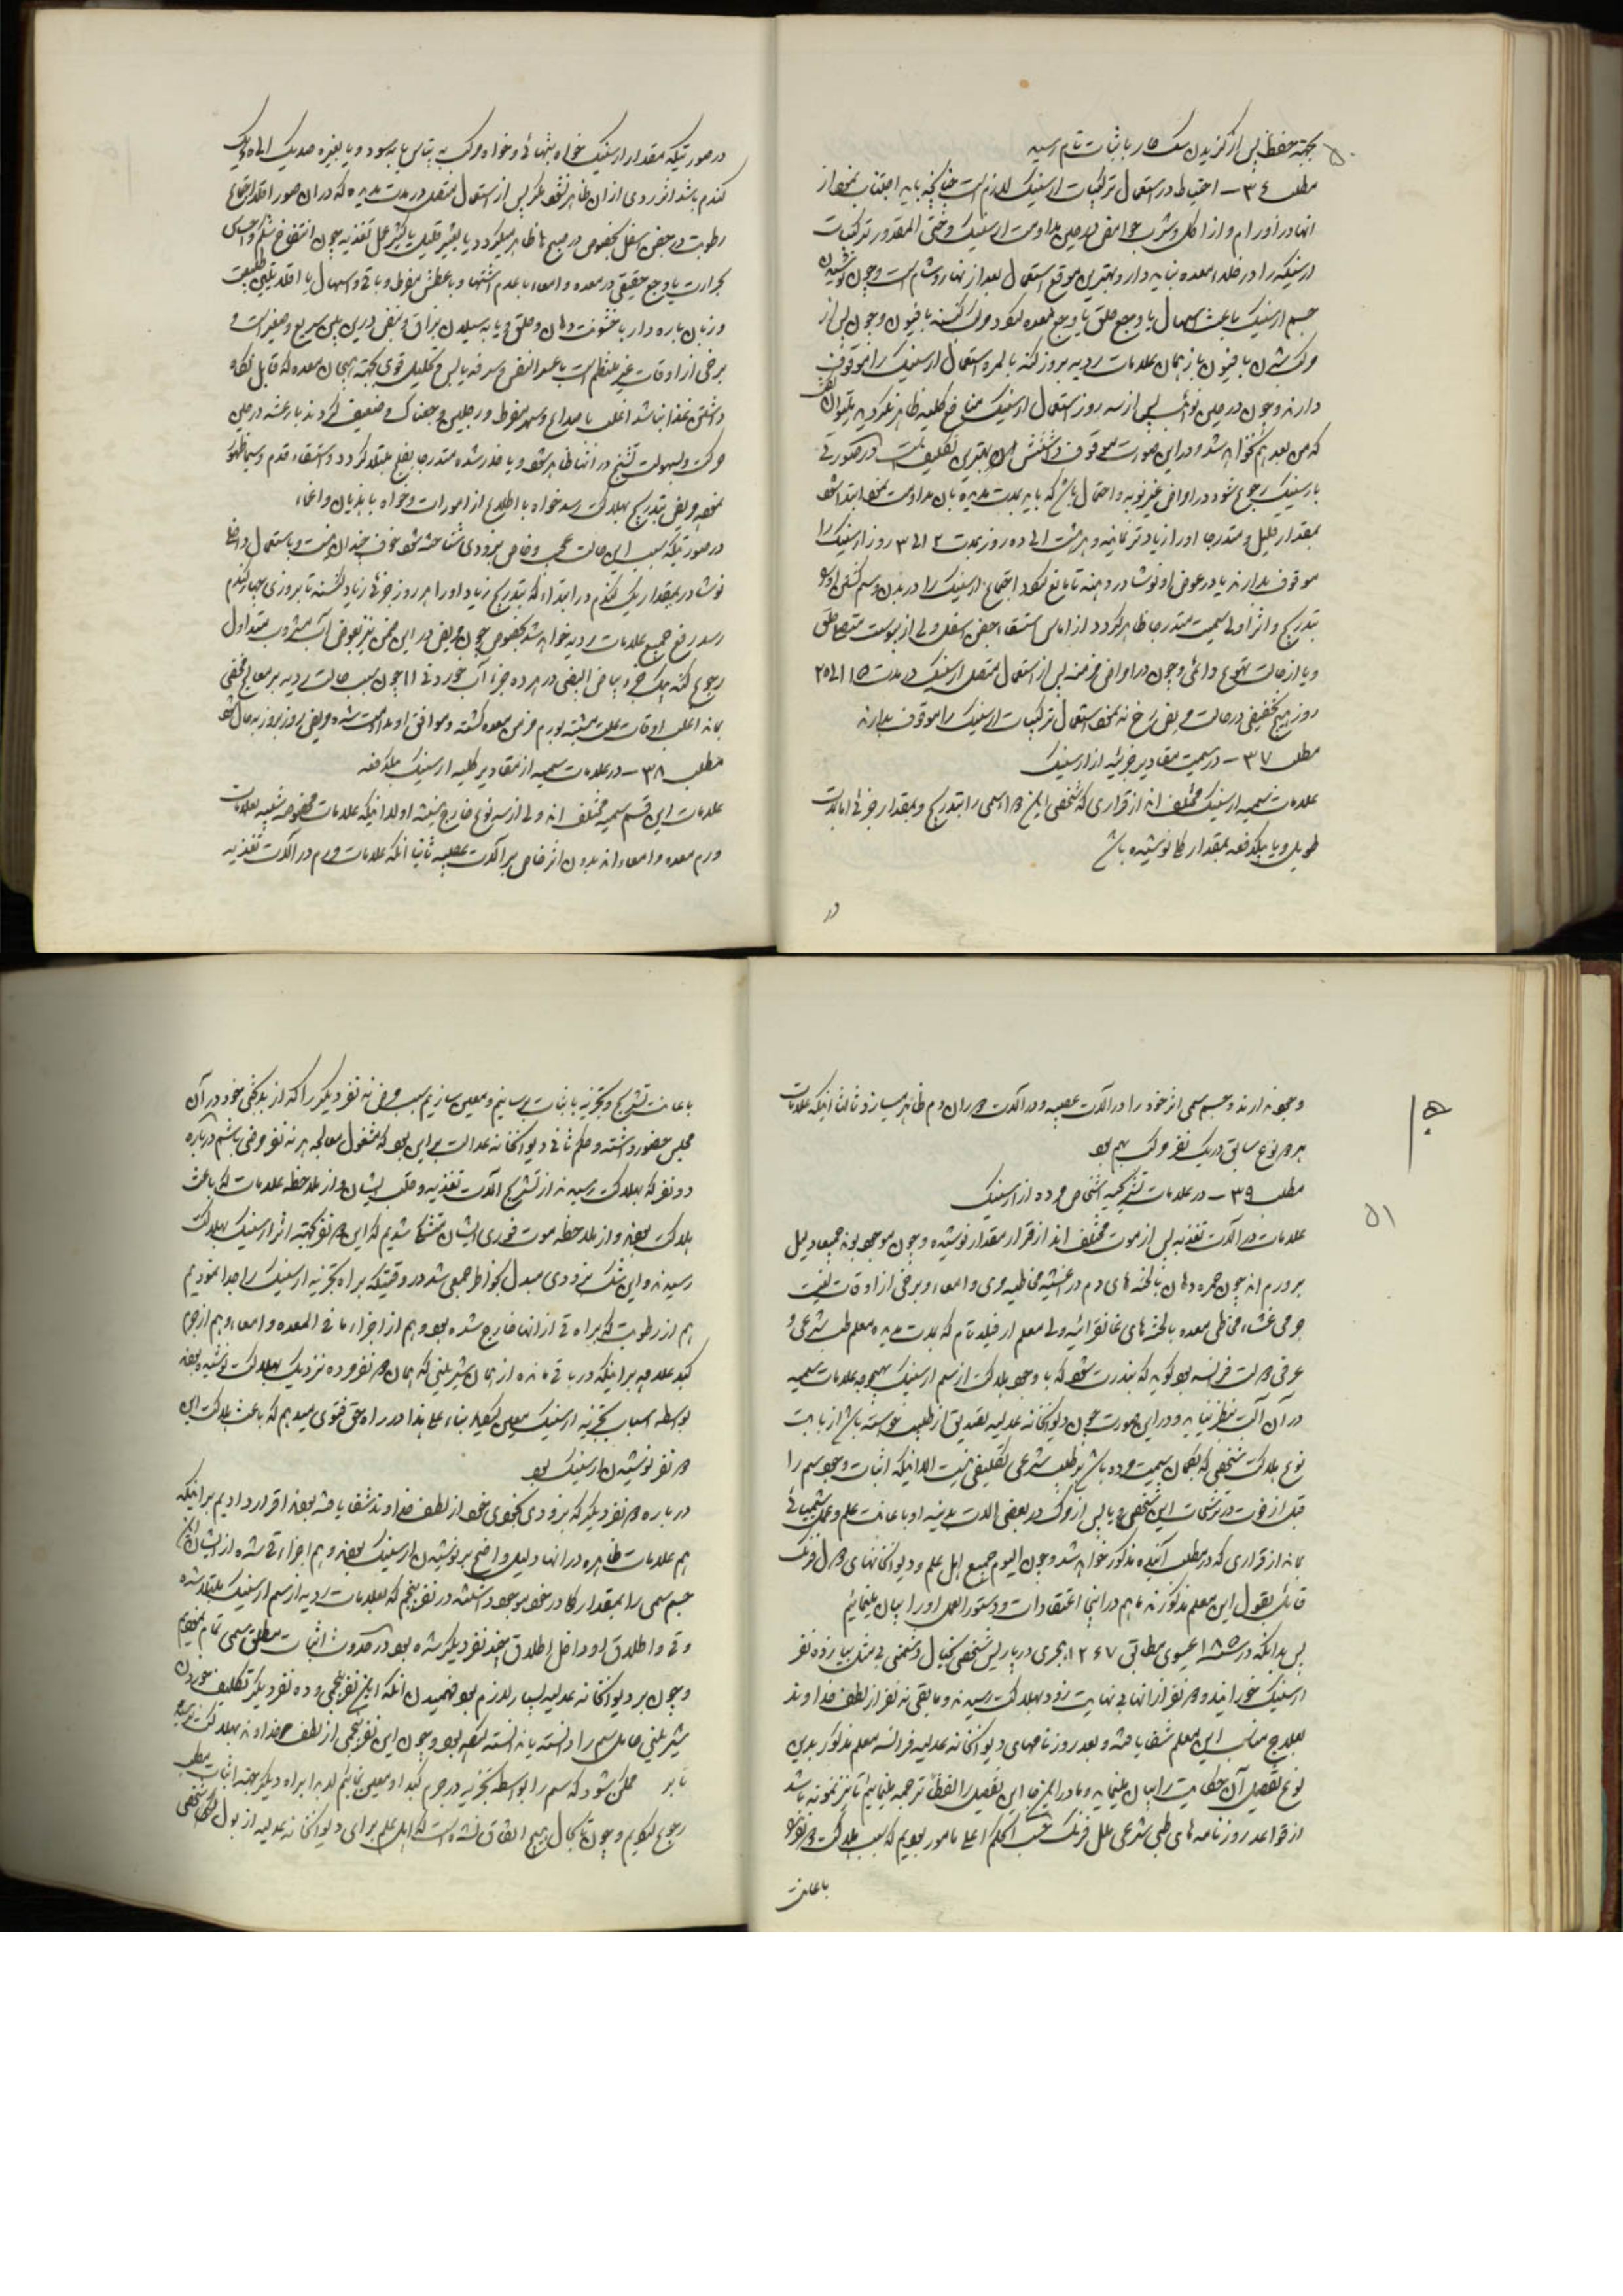 ۵۰
بجهة حفظ پس از گزیدن سک هار باثبات تام رسید
مطلب ۳۴ – احتیاط در استعمال ترکیبات ارسنیک لازم است چنانکه باید اجتناب نمود از
انها در اورام و از اکل و شرب حوامض در حین مداومت ارسنیک و حتی المقدور ترکیبات
ارسنیک را در خلاء معده نباید داد و بهترین موقع استعمال بعد از نهار و شام است و چون نوشیدن
جسم ارسنیک باعث اسهال یا وجع حلق یا وجع معده شود مرکب کنند با افیون و چون پس از
مرکب شدن با فیون باز همان علامات ردیه بروز کند بالمره استعمال ارسنیک را موقوف
دارند و چون در حین نوائب پس از سه روز استعمال ارسنیک منافع کلیه ظاهر نکردید میتوان گفت
که من بعد هم نخواهد شد و در این صورت موقوف داشتنش بهترین تکلیف است در صورتی
بارسنیک رجوع شود در امراض غیر نوبه و احتمال باشد که باید بمدت مدیده بان مداومت نمود ابتدا شود
بمقدار قلیل و متدرجا او را زیادتر نمایند و هر هشت الی ده روز بمدت ۲ الی ۳ روز ارسنیک را
موقوف بدارند یا در عوض او نوشادر دهند تا مانع شود اجتماع ارسنیک را در بدن و سم کشتن او
بتدریج و اثر اولی سمیت متدرجا ظاهر کردد از اماس استسقاء جفن اسفل ولی از پوست
و یا از حالت تهوع دائمی و چون در امراض مزمنه پس از استعمال متصل ارسنیک در مدت ۱۵ الی ۲۵
روز هیچ تخفیفی در حالت مریض رخ ندهد استعمال ترکیبات ارسنیک را موقوف بدارند
مطلب ۳۷ – در سمیت مقادیر جزئیه از ارسنیک
علامات سمیه ارسنیک مختلف اند از قراری که شخص این سم را بتدریج و بمقدار جزئی اما بمدت
طویل و یا بیکدفعه بمقدار کلی نوشیده باشد
در
درصورتیکه مقدار ارسنیک خواه بتنهائی و خواه مرکب به پتاس یا به سود و یا بغیره صدیک الی ده یک
کندم باشد اثر ردی از ان ظاهر نشود مگر پس از استعمال متصل در مدت مدیده که در ان صور اقلا اجتماع
رطوبت در جفن اسفل بخصوص در صبح ها ظاهر میکردد یا بتغییر قلیل یا کثیر عمل تغذیه چون انتفاخ شکم و احساس
حرارت یا وجع حقیقی در معده و امعاء یا عدم اشتها و یا عطش مفرط و یا قی و اسهال یا اقلا تلیین طبیعت
و زبان باردار یا خشونت دهان و حلق و یا به سیلان بزاق و نبض در این بین سریع و صغیر است و
برخی از اوقات غیر منتظم است با عسر النفس و سرفه یابس و تحلیل قوی بجهته هیجان معده که قابل نکاه
داشتن غذا نباشد اغلب با صداع و سهر مفرط و رجلین وجعناک و ضعیف کردند با رعشه در حین
حرکت و بسهولت تشنج در انها ظاهر شود و یا خدر شده متدرجا بفلج مبتلا کردد و استسقاء قدم
نمود و مریض بتدریج بهلاکت رسد خواه با اطلاع از امورات و خواه با هذیان و اغماء
درصورتیکه سبب این حالت عجب و خاص بزودی شناخته شود خوف چندان نیست و باستعمال داخلی
نوشادر بمقدار یک کندم در ابتدا که بتدریج زیاد او را هر روز جزئی زیاد کنند تا بروزی چهار کندم
رسد رفع جمیع علامات ردیه خواهد شد بخصوص چون مریض در این ضمن نیز بعوض آب مشروب متداول
رجوع کند بیک جزء بیاض البیض در هر ده جزء آب خوردنی اما چون سبب حالت ردیه بر معالج مخفی
ماند اغلب اوقات علت مشتبه بورم مزمن معده گشته و موافق او مداومت شده مریض روز بروز بدحال شود
مطلب ۳۸ – در علامات سمیه از مقادیر کلیه ارسنیک بیکدفعه
علامات این قسم سمیه مختلف اند ولی از سه نوع خارج نیستند اولا انیکه علامات مخصوصه شبیه بعلامات
ورم معده و امعاء اند بدون اثر خاص بر آلات عصبیه ثانیا انکه علامات ورم در آلات تغذیه
۵۱
وجود ندارند و جسم سمی اثر خود را در آلات عصبیه و در آلات دوران دم ظاهر میسازد ثالثا انیکه علامات
هر دو نوع سابق در یک نفر مرکب بهم بود
مطلب ۳۹ – در علامات تشریحیه اشخاص مرده از ارسنیک
علامات در آلات تغذیه پس از موت مختلف اند از قرار مقدار نوشیده و چون موجود بوند جمیعا دلیل
بر ورم اند چون حمره دهان با لخته های دم در اغشیه مخاطیه مری و امعاء و برخی از اوقات لینت
جرمی غشاء مخاطی معده با لخته های غانغرائیه ولی معلم ارفیلا نام که بمدت مدیده معلم طب شرعی و
عرفی دولت فرانسه بود کوید که بندرت شود که با وجود هلاکت از سم ارسنیک هیچوجه علامات سمیه
در آن آلات بنظر نیاید و در این صورت چون دیوانخانه عدلیه تصدیق از طبیب خواسته باشد از بابت
نوع هلاکت شخصی که بکمان سمیت مرده باشد بر طبیب شرعی تکلیفی نیست الا انیکه اثبات وجود سم را
قبل از موت در ترشحات این شخص و یا پس از مرگ در بعضی الات بدنیه او با عانت علم و عمل شیمیائی
نماید از قراری که در مطلب آینده مذکور خواهد شد و چون الیوم جمیع اهل علم و دیوانخانهای دول فرنک
قائل بقول این معلم مذکورند ما هم در اینجا اعتقادات و دستورالعمل او را بیان مینمائیم
پس بدانکه در سنه ۱۸۵ عیسوی مطابق ۱۲۶۷ هجری در پاریس شخصی بخیال دشمنی بی مثل بیازده نفر
ارسنیک خورانید و دو نفر از انها بی نهایت زود بهلاکت رسیدند و مابقی نه نفر از لطف خداوند
بعلاج مناسب این معلم شفا یافتند و بعد روزنامهای دیوانخانه عدلیه فرانسه معلم مذکور بدین
نوع تفصیل آن حکایت را بیان مینماید و ما در اینجا این تفصیل را لفظا ترجمه مینمائیم تا نیز نمونه باشد
از قواعد روزنامه های طبی شرعی ملل فرنک حسب الحکم اعلی مامور بودیم که سبب هلاکت دو نفر را
باعانت
باعانت تشریح و تجزیه باثبات رسانیم و معین سازیم سبب مرض نه نفر دیگر را که از بدبختی خود در آن
مجلس حضور داشتند و حکم ثانی دیوانخانه عدالت بر این بود که مشغول معالجه هر نه نفر مرضی باشیم درباره
دو نفر که بهلاکت رسیدند از تشریح آلات تغذیه و قلب ایشان و از ملاحظه علامات که باعث
هلاکت بودند و از ملاحظه موت فوری ایشان متشکک شدیم که این دو نفر بجهته اثر ارسنیک بهلاکت
رسیدند و این شک بزودی مبدل بخواطر جمعی شد در وقتیکه براه تجزیه ارسنیک را جدا نمودیم
هم از رطوبت که براه قی از انها خارج شده بود و هم از اجزاء مافی المعده و امعاء و هم از جرم
کبد علاوه بر انیکه در باقی مانده از همان شیرینی که همان دو نفر مرده نزدیک بهلاکت نوشیده بودند
بواسطه اسباب تجزیه ارسنیک معین شد بناء علی هذا در راه حق فتوی میدهیم که باعث هلاکت این
دو نفر نوشیدن ارسنیک بود
درباره نفر دیگر که بزودی بخوبی خود از لطف خداوند شفا یافته بودند اقرار دادیم بر انیکه
هم علامات ظاهره در انها دلیل واضح بر نوشیدن ارسنیک بودند و هم اجزاء قی شده از ایشان
جسم سمی را بمقدار کلی در خود موجود داشتند در نفر پنجم که بعلامات ردیه از سم ارسنیک مبتلا شده
و قی و اطلاق او داخل اطلاق چند نفر دیگر شده بود در صدد اثبات مطلق سمی تمام نمودیم
و چون بر دیوانخانه عدلیه بسیار لازم بود فهمیدن انکه این نفر پنجمی و ده نفر دیگر تکلیف خوردن
شیرینی حامل سم را دانسته یا ندانسته کرده بود و چون این نفر پنجمی از لطف خداوند بهلاکت نرسید
تا بر ممکن شود که سم را بواسطه تجزیه در جرم کبد او معین نمائیم لابد ا براه دیگر بجهته اثبات مطلب
رجوع کردیم و چون تا بحال هیچ اتفاق نشده است که اهل علم برای دیوانخانه عدلیه از بول شخصی